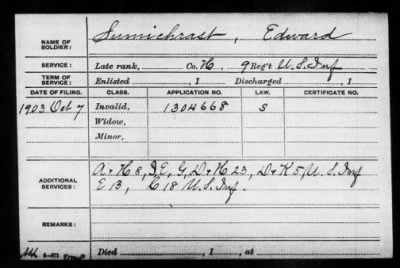 NAME OF SOLDIER: Sumichrast, Edward
SERVICE: Late rank, Co. H, 9 Reg't U.S. Inf
TERM OF SERVICE: Enlisted , 1 Discharged , 1
DATE OF FILING. CLASS. APPLICATION NO. LAW. CERTIFICATE NO.
1903 Oct 7 Invalid, 1304668 S
Widow,
Minor,
ADDITIONAL SERVICES: A + H 8, I, E, G, D + H 23, D + K 5, U. S. Inf
E 13, C 18 U. S. Inf.
REMARKS:
Died , 1 , at